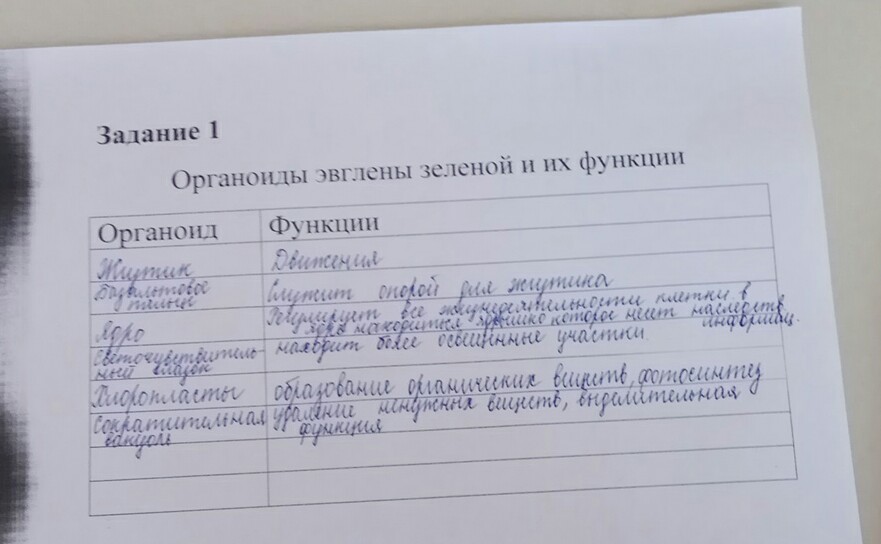 Задание 1
Органоиды эвглены зеленой и их функции
Органоид Функции
Жгутик Движения
Базальтовое тельце Служит опорой для жгутика
Ядро Регулирует все жизнедеятельности клетки. в
ядре находиться ядрышко которое несет наследств.
информац.
Светочувствитель-
ный глазок находит более освещинные участки
Хлоропласты образование органических веществ, фотосинтез
Сократительная удаление ненужных веществ, выделительная
вакуоль функция